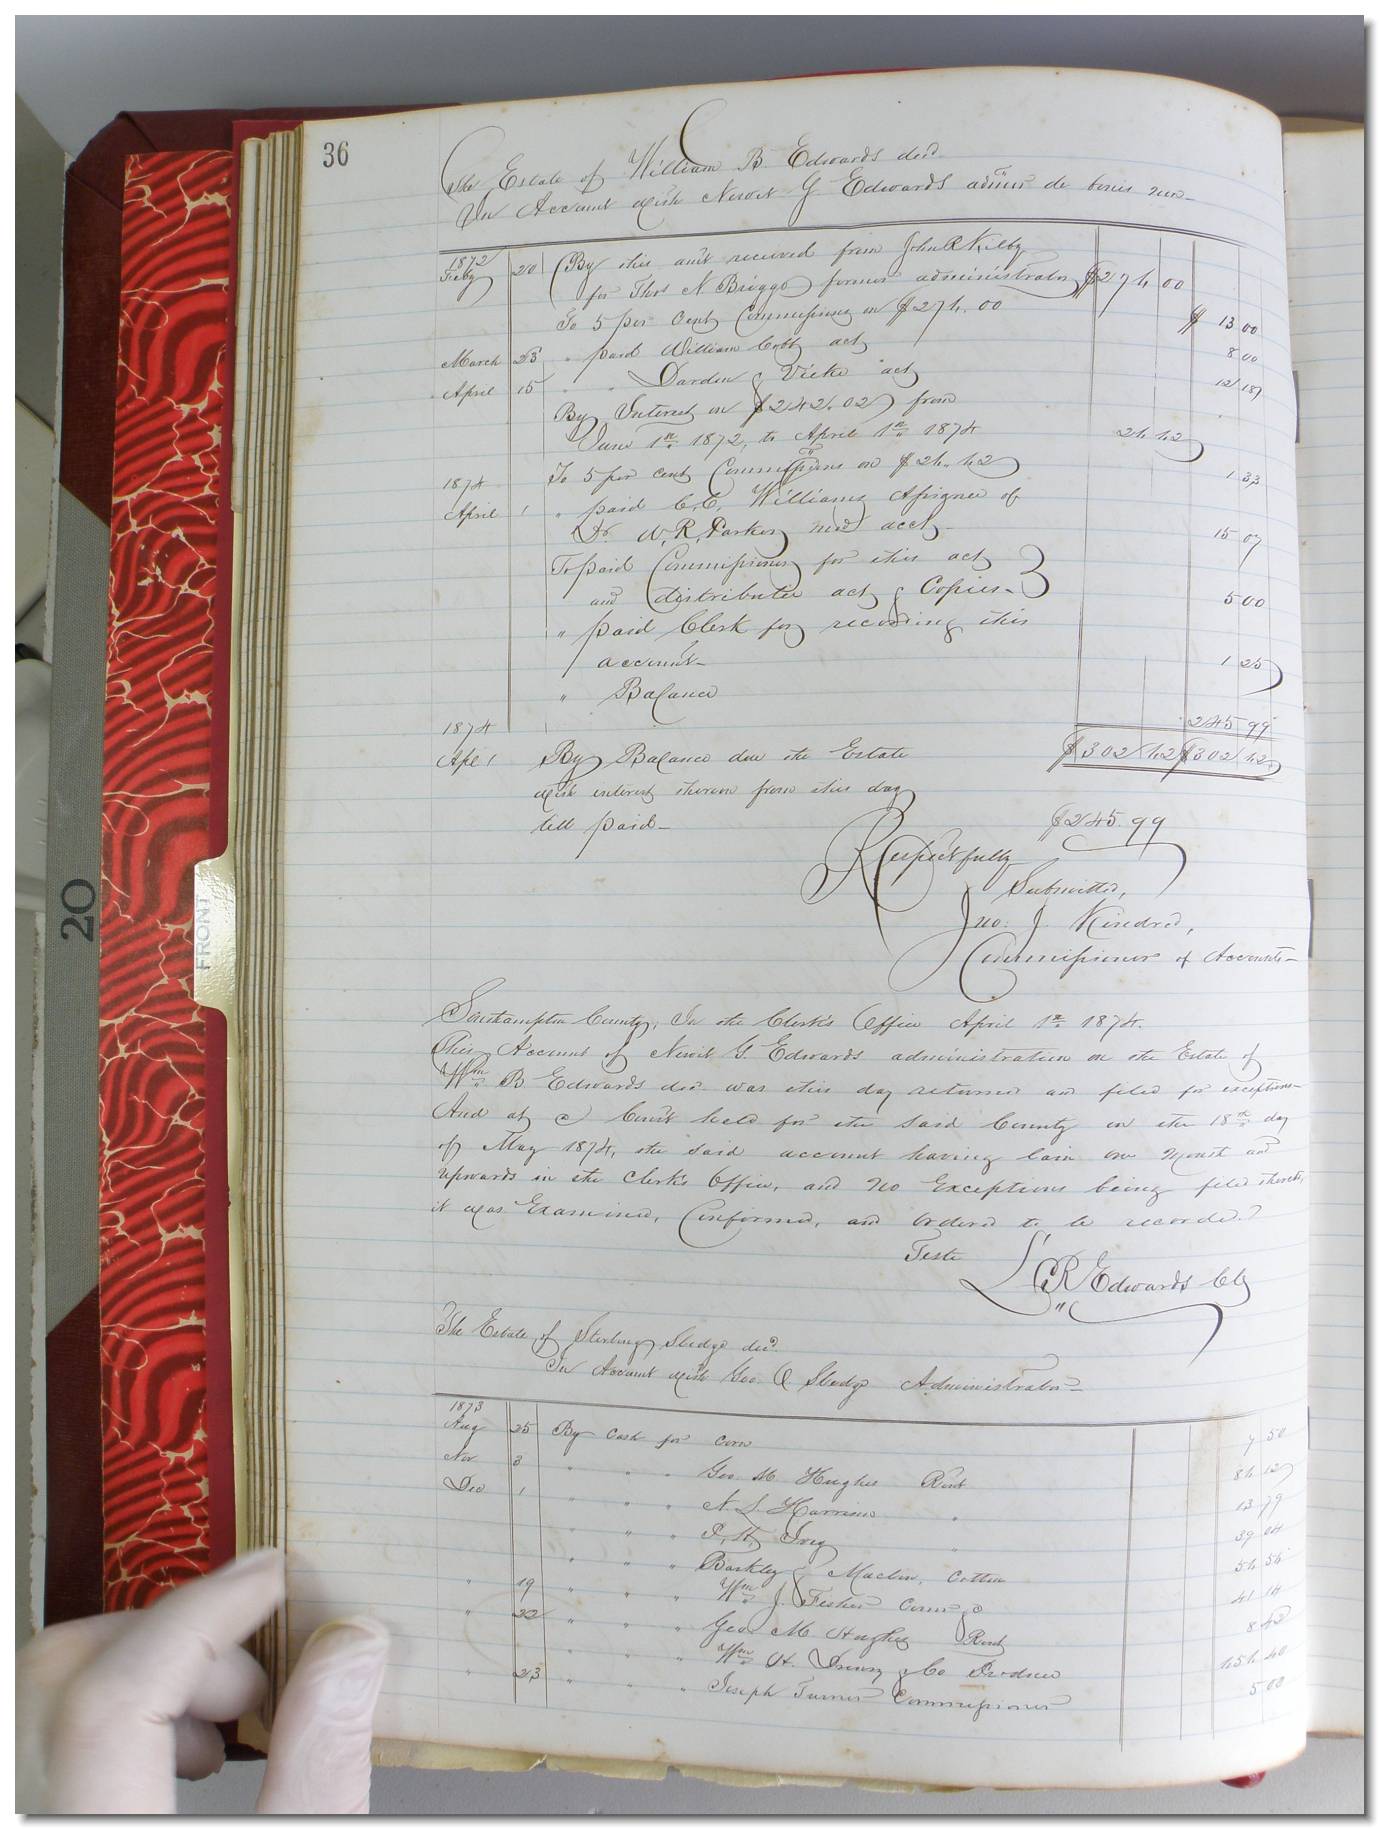 36
The Estate of William B. Edwards decd.
In Account with Newit G Edwards admr de bonis non
1872
Feby 20 By this amt received from John R Kilby
for Thos N. Briggs former administrator $276 00
To 5 per cent Commissions on $276.00 $13 80
March 23 " paid William Cobb act 8 00
April 15 " " Darden & Vicks act 12 18
By Interest on $242.02 from
June 1st 1872, to April 1st 1874 26 62
To 5 per cent Commissions on $26.62 1 33
1874
April 1 " paid C.C. Williams Assignee of
Dr. W. R. Parker med acct 15 07
To paid Commissioner for this act
and distributee act & Copies 5 00
" paid Clerk for recording this
account 1 25
" Balance 245 99
$302 62 $302 62
1874
Apl 1 By Balance due the Estate
with interest thereon from this day
till paid $245.99
Respectfully
Submitted,
Jno. J. Kindred,
Commissioner of Accounts
Southampton County, In the Clerk's Office April 1st 1874.
This Account of Newit G. Edwards administration on the Estate of
Wm B Edwards decd was this day returned and filed for exceptions
And at a Court held for the said County on the 18th day
of May 1874, the said account having lain one Month and
upwards in the Clerk's Office, and no Exceptions being filed thereto,
it was Examined, Confirmed, and Ordered to be recorded.
Teste L R Edwards Clk
The Estate of Sterling Sledge decd.
In Account with Geo. Q. Sledge Administrator
1873
Aug 25 By Cash for Corn 7 50
Nov 3 " " " Geo M Hughes Rent 86 12
Dec 1 " " " N. L. Harrison " 13 79
" " " P. H. Ivey " 39 04
" " " Barkley & Maclin, Cotton 56 56
" 19 " " " Wm J. Fisher Corn &c 41 14
" 22 " " " Geo M Hughes Rent 8 42
" " " Wm H. Drewry & Co Produce 656 40
" 23 " " " Joseph Turner Commissioner 5 00
20
FRONT